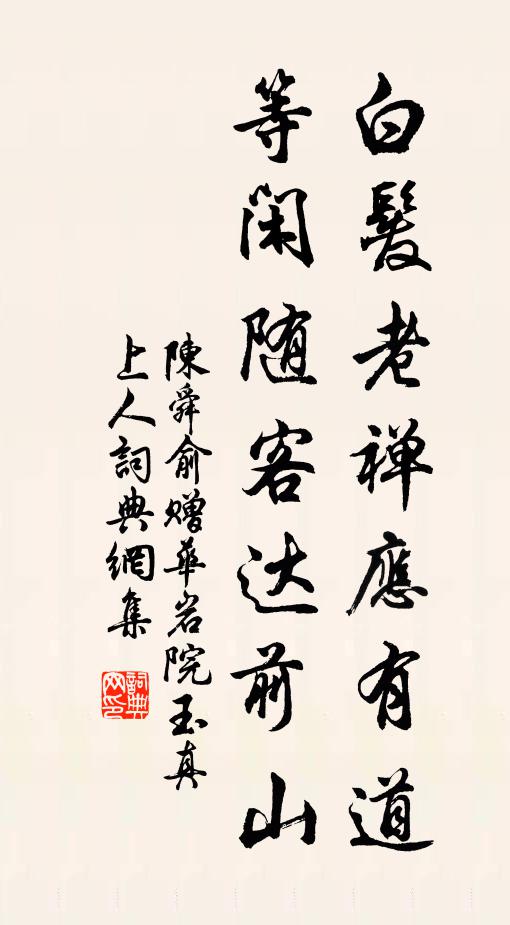 白髮老禅應有道
等閑随客达前山
陳舜俞赠華岩院玉真
上人詞典網集
詞典网印